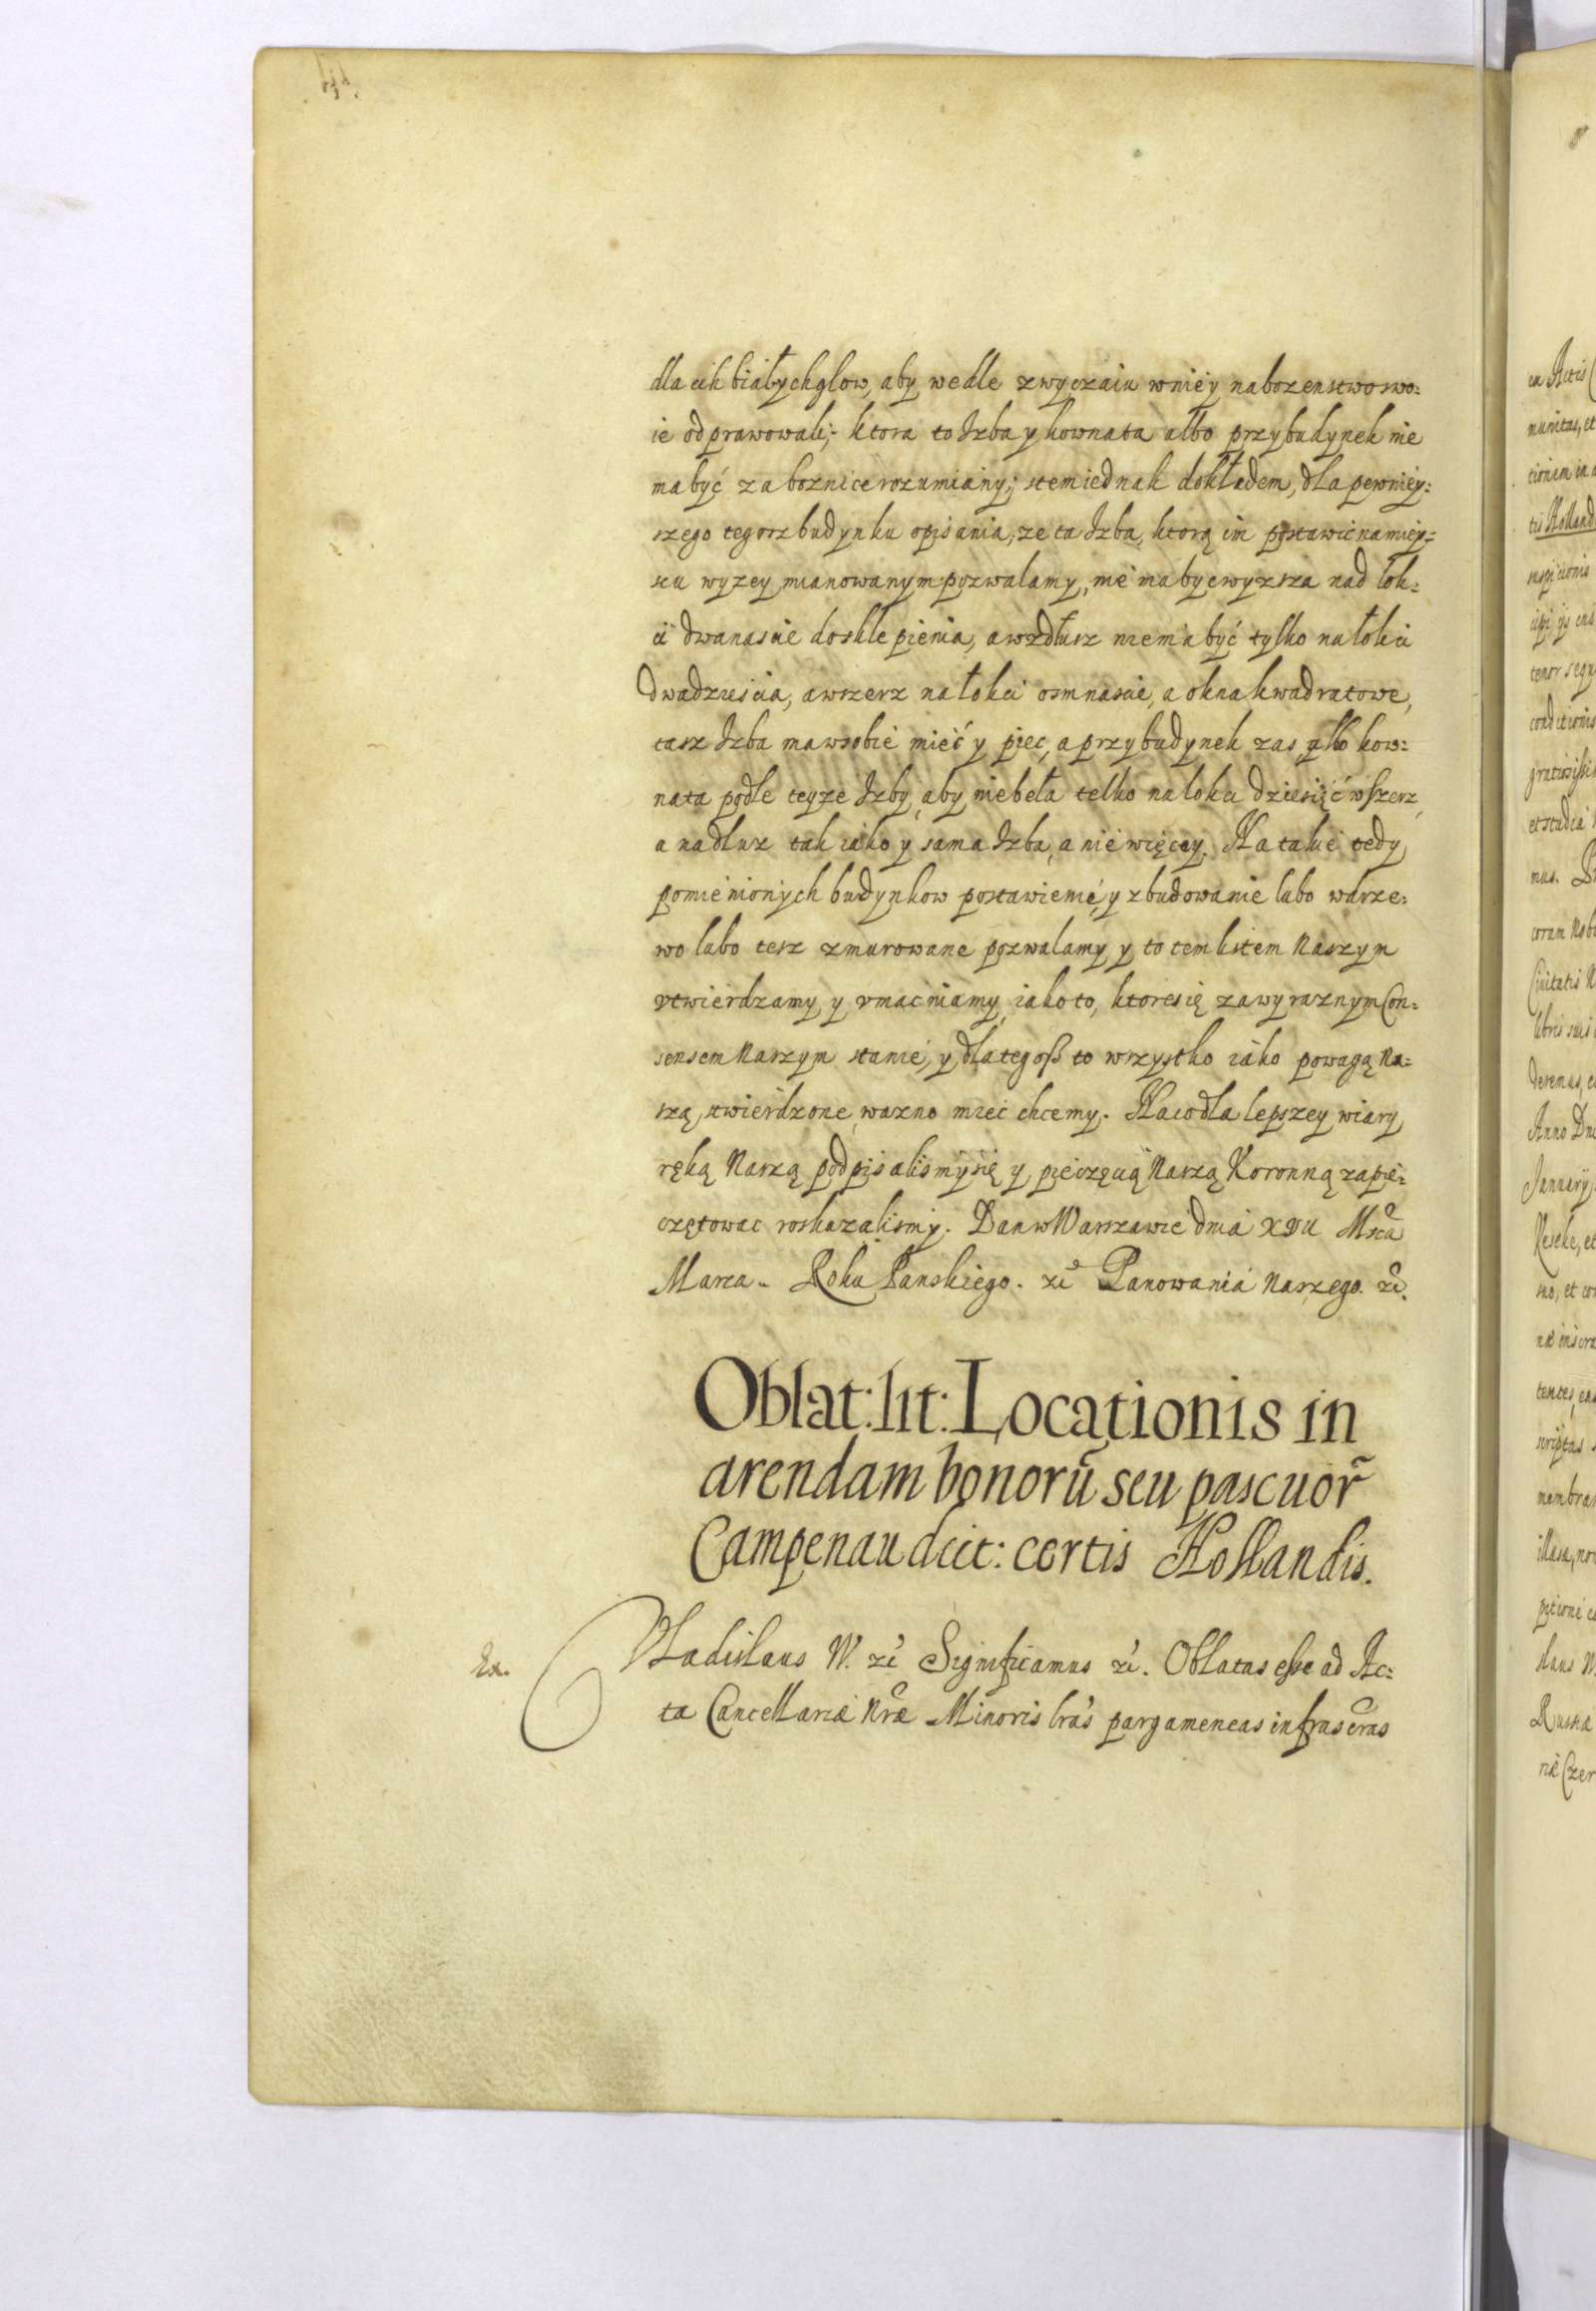 dla ich białychglow, aby wedle zwyczaiu wniey nabozenstwo swo:
ie odprawowali; ktora to Izba y kownata albo przybudynek nie
ma być za boznice rozumiany; stem iednak dokładem, dla pewniey:
szego tegosz budynku opisania, ze ta Izba, ktorą im postawic na miey:
scu wyzey mianowanym pozwalamy, nie ma byc wyzsza nad łok:
ci dwanascie do sklepienia, a wzdłusz niema być tylko na łokci
dwadziescia, a wszerz na łokci osmnascie, a okna kwadratowe,
tasz Izba ma w sobie mieć y piec, a przybudynek zas albo kow:
nata podle teyze Izby, aby nie beła telko na lokci dziesięć wszerz,
a nadłuz tak iako y sama Izba, a nie więcey. Na takie tedy
pomienionych budynkow postawienie, y zbudowanie lubo wdrze:
wo lubo tesz zmurowane pozwalamy y to tem listem Naszym
vtwierdzamy y vmacniamy, iako to, ktore się za wyraznym Con:
sensem Naszym stanie, y dla tegoß to wszystko iako powagą Na:
szą, stwierdzone, wazno miec chcemy. Na co dla lepszey wiary
ręką Naszą podpisalismy się y pieczęcią Naszą Koronną zapie:
czętowac roskazalismy. Dan w Warszawie dnia XVII Msca
Marca. Roku Panskiego. zc Panowania Naszego. zc.
Oblat: lit: Locationis in
arendam bonorũ seu pascuor̃
Campenau dict: certis Hollandis.
Ex.
Vladislaus IV. zc Significamus zc. Oblatas esse ad Ac:
ta Cancellariæ Nræ Minoris lras pargameneas infrascras